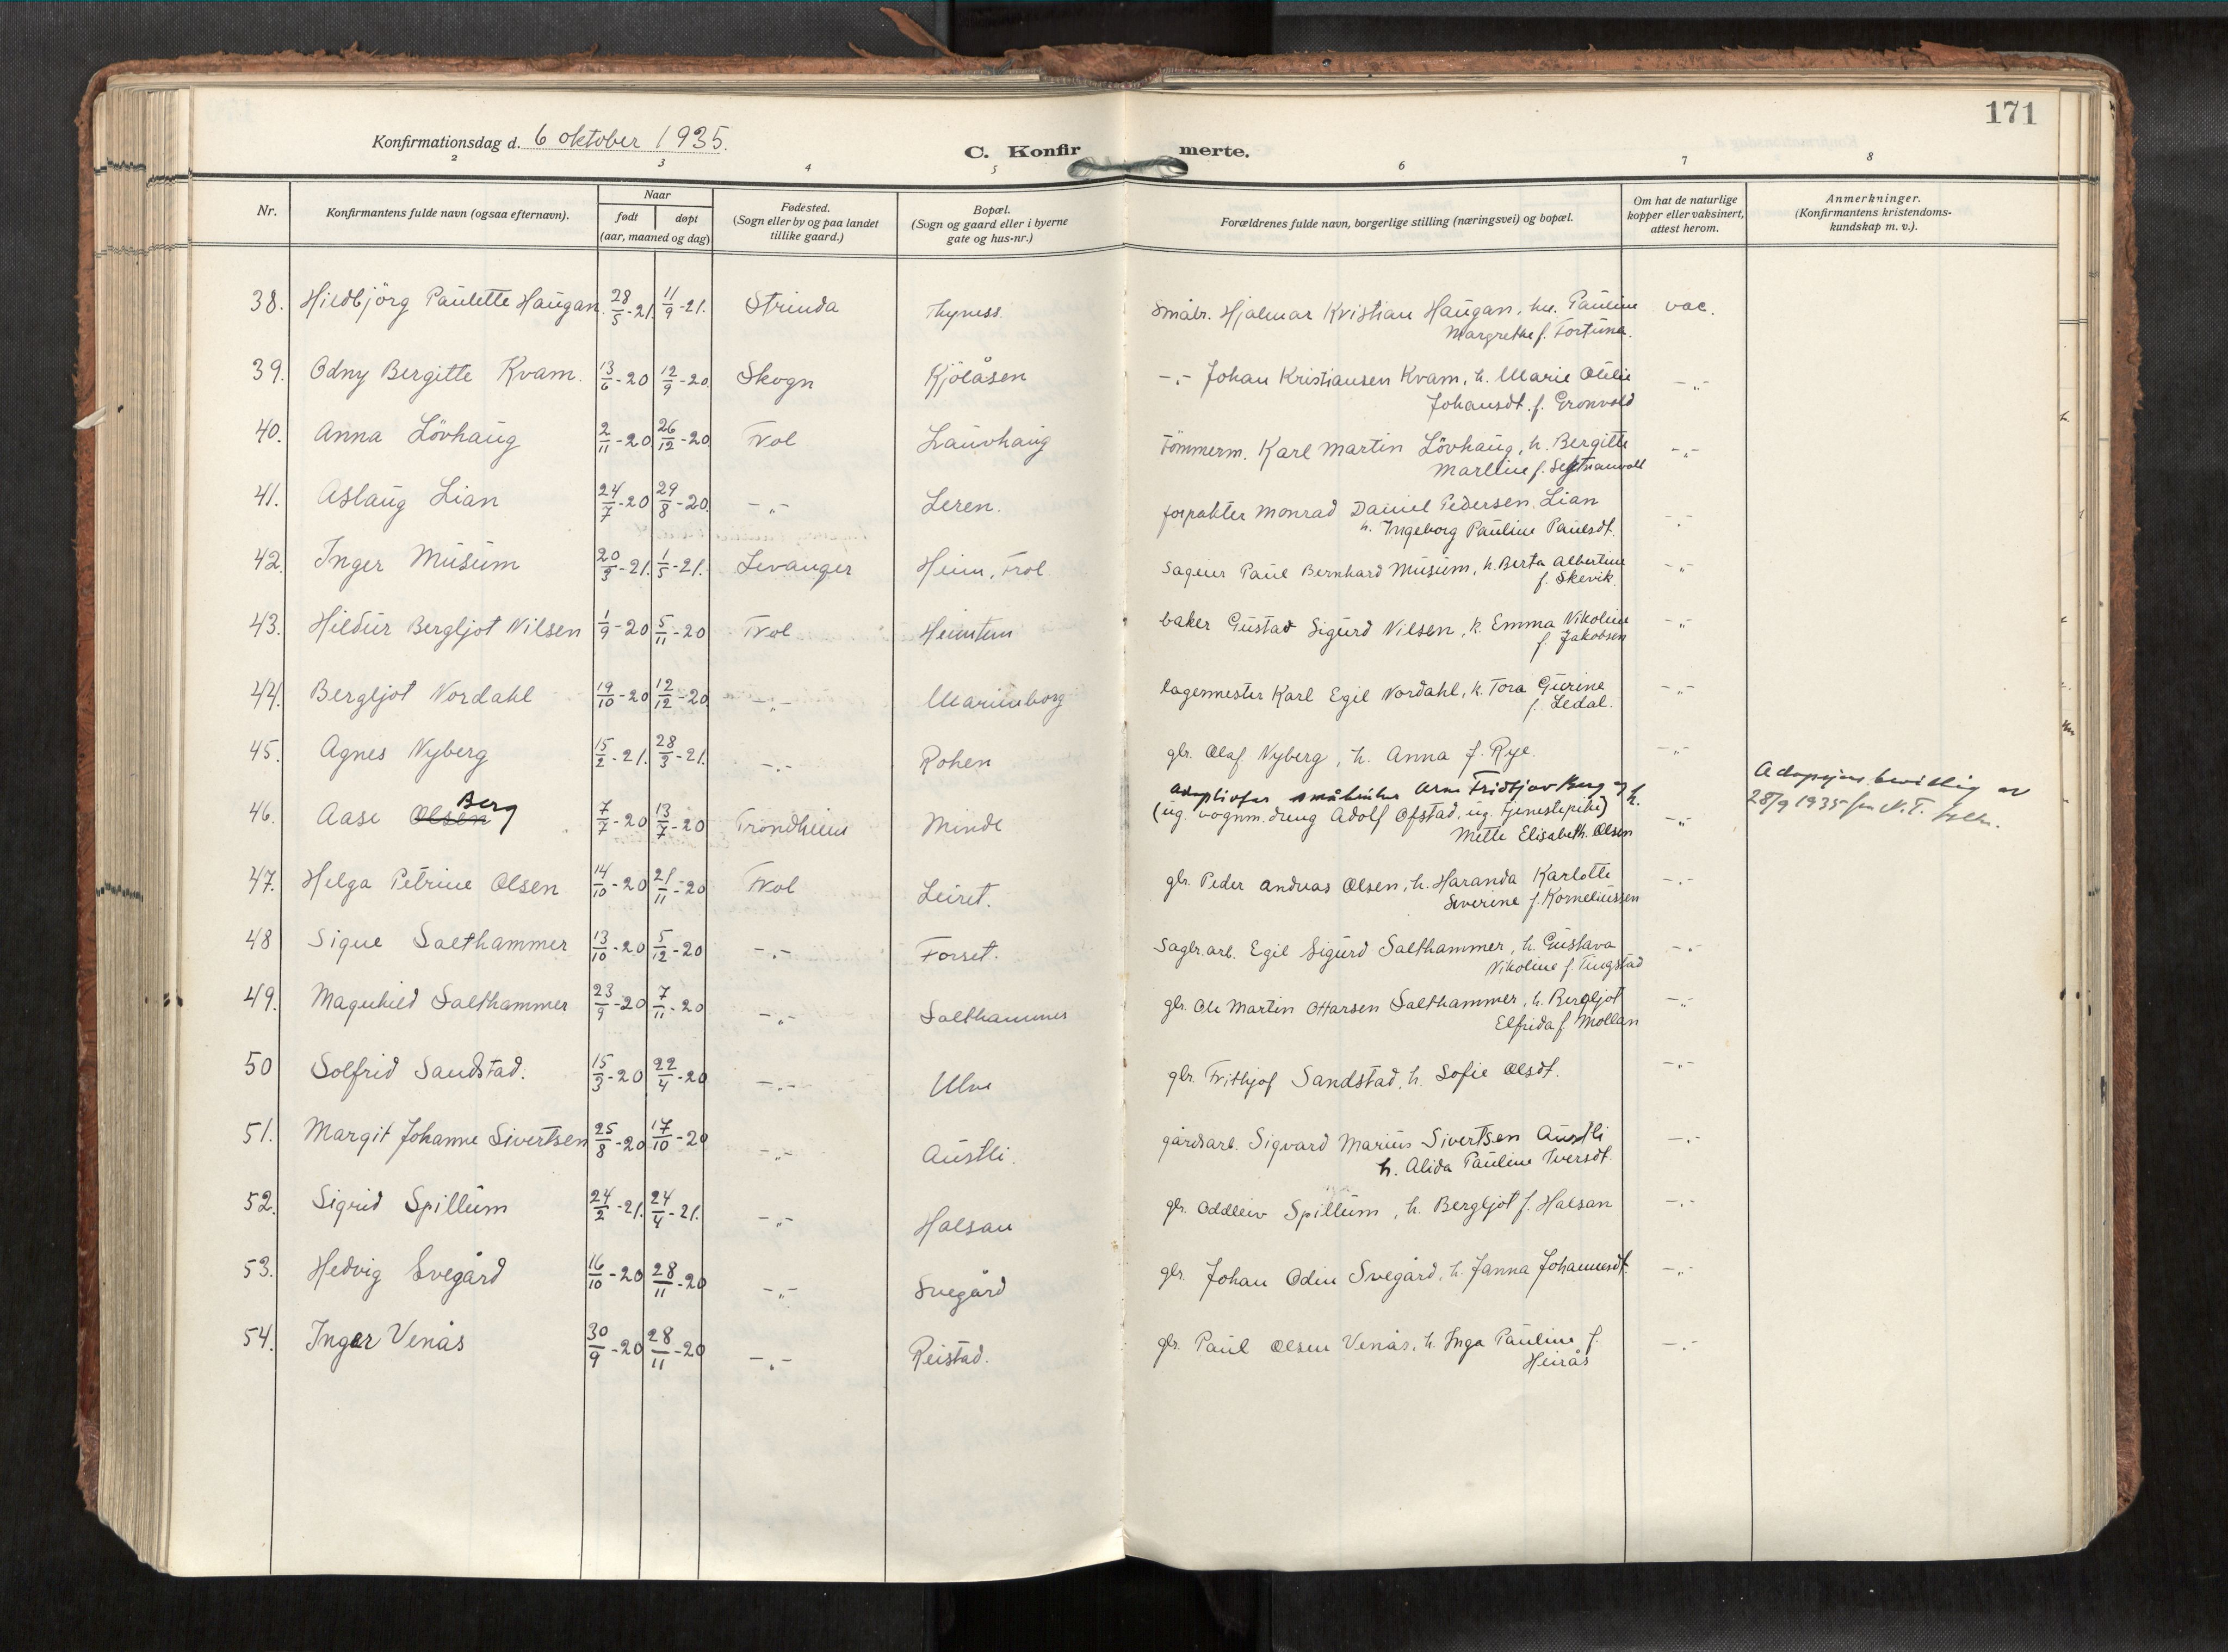 171
Konfirmationsdag d. 6 oktober 1935.
C. Konfirmerte.
2 3 4 5 6 7 8
Nr. Konfirmantens fulde navn (ogsaa efternavn). Naar født døpt (aar, maaned og dag) Fødested. (Sogn eller by og paa landet tillike gaard.) Bopæl. (Sogn og gaard eller i byerne gate og hus-nr.) Forældrenes fulde navn, borgerlige stilling (næringsvei) og bopæl. Om hat de naturlige kopper eller vaksinert, attest herom. Anmerkninger. (Konfirmantens kristendomskundskap m. v.).
38. Hildbjörg Paulette Haugan. 28/5-21. 11/9-21. Strinda Thyness. Småbr. Hjalmar Kristian Haugan, hu. Pauline vac.
Margrethe f. Fortuna.
39. Odny Bergitte Kvam. 13/6-20 12/9-20 Skogn Kjölåsen -"- Johan Kristiansen Kvam, h. Marie Otilie -"-
Johansdt. f. Gronvold
40. Anna Lövhaug 2/11-20 26/12-20 Frol Lauvhaug Tömmerm. Karl Martin Lövhaug, h. Bergitte -"-
41. Aslaug Lian 24/7-20 29/8-20. -"- Leren. forpakter Monrad Daniel Pedersen Lian -"-
h. Ingeborg Pauline Paulsdt.
42. Inger Musum 20/3-21. 1/5-21. Levanger Heim, Frol Sageier Paul Bernhard Musum, h. Berta Albertine -"-
f. Skevik.
43. Hildur Bergljot Nilsen 1/9-20 5/11-20 Frol Heimtun baker Gustav Sigurd Nilsen, h. Emma Nikoline -"-
f. Jakobsen
44. Bergljot Nordahl 19/10-20 12/12-20 -"- Marienborg lagermester Karl Egil Nordahl, h. Tora Gurine -"-
f. Ledal.
45. Agnes Nyberg 15/2-21. 28/3-21. -"- Rohen gbr. Olaf Nyberg, h. Anna f. Rye. -"-
46. Aase Olsen Berg 7/7-20 13/7-20 Trondheim Minde Arne Fridtjov Berg og h. 28/9 1935 fra N.T.
(ug. vognm. dreng Adolf Ofstad, ug. tjenestepike) -"-
Mette Elisabeth Olsen
47. Helga Petrine Olsen 14/10-20 21/11-20 Frol Leiret. gbr. Peder Andreas Olsen, h. Haranda Karlotte -"-
Severine f. Korneliussen
48 Signe Salthammer 13/10-20 5/12-20 -"- Forset. Sagbr.arb. Egil Sigurd Salthammer, h. Gustava -"-
Nikoline f. Tingstad
49. Magnhild Salthammer 23/9-20 7/11-20 -"- Salthammer gbr. Ole Martin Ottarsen Salthammer, h. Bergljot -"-
Elfrida f. Mollan
50 Solfrid Sandstad. 15/3-20 22/4-20 -"- Ulve gbr. Frithjof Sandstad, h. Sofie Olsdt. -"-
51. Margit Johanne Sivertsen 25/8-20 17/10-20 -"- Austli. gårdsarb. Sigvard Marius Sivertsen Austli -"-
h. Alida Pauline Iversdt.
52. Sigrid Spillum 24/2-21. 24/4-21. -"- Halsan gbr. Oddleiv Spillum, h. Bergljot f. Halsan -"-
53. Hedvig Svegård 16/10-20 28/11-20 -"- Svegård gbr. Johan Odin Svegård, h. Janna Johannesdt. -"-
54. Inger Venås 30/9-20 28/11-20 -"- Reistad. gbr. Paul Olsen Venås, h. Inga Pauline f. -"-
Heirås